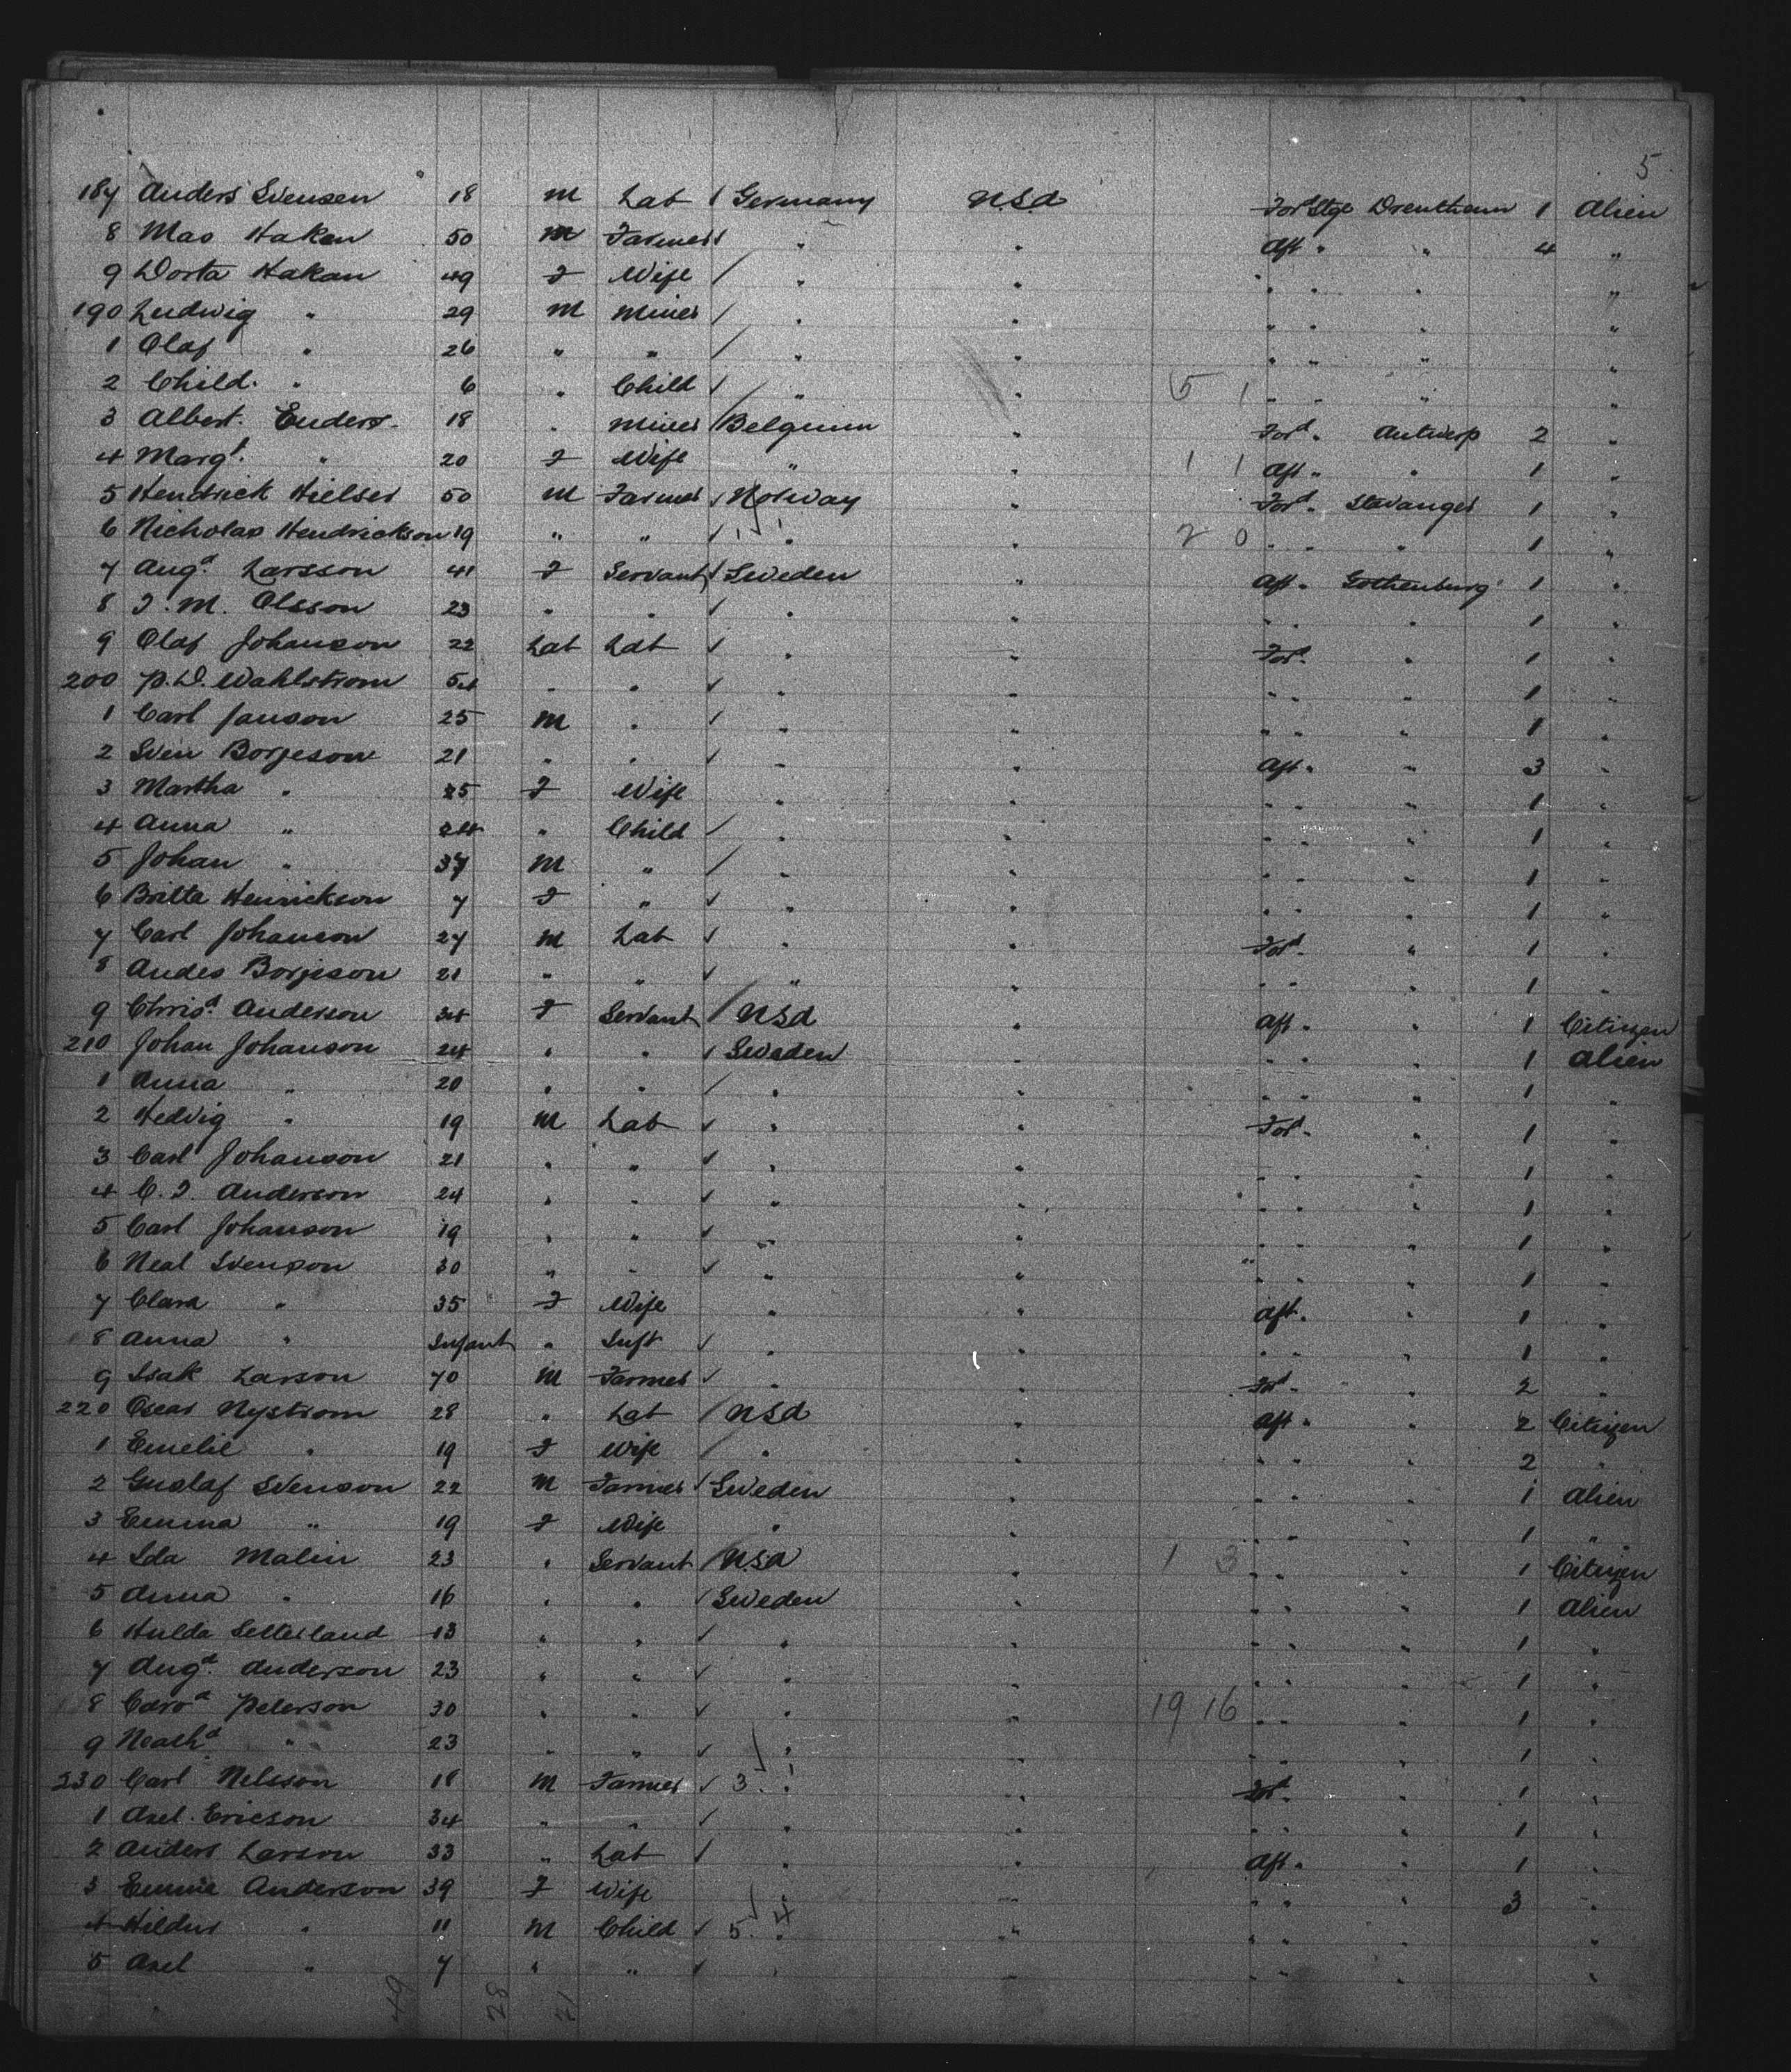 5
187 Anders Svensen 18 M Lab / Germany U.S.A Ford Stge Drontheim 1 Alien
8 Mas Hakan 50 M Farmer / " " Aft " " 4 "
9 Dorta Hakan 49 F Wife / " " " " " "
190 Ludwig " 29 M Miner / " " " " " "
1 Olaf " 26 " " / " " " " " "
2 Child. " 6 " Child ✓ " " 5 1 " " " "
3 Albert. Enders 18 " Miner / Belgium " Ford " Antwerp 2 "
4 Margt. " 20 F Wife " " 1 1 Aft " " 1 "
5 Hendrick Hielser 50 M Farmer ✓ Norway " Ford " Stavanger 1 "
6 Nicholas Hendrickson 19 " " ✓ " " 2 0 " " " 1 "
7 Augd. Larsson 41 F Servant ✓ Sweden " Aft " Gothenburg 1 "
8 J. M. Olsson 23 " " ✓ " " " " " 1 "
9 Olaf Johanson 22 Lab Lab ✓ " " Ford " " 1 "
200 P. D. Wahlstrom 54 " " ✓ " " " " " 1 "
1 Carl Janson 25 M " ✓ " " " " " 1 "
2 Sven Borjeson 21 " " ✓ " " Aft " " 3 "
3 Martha " 25 F Wife " " " " " 1 "
4 Anna " " Child ✓ " " " " " 1 "
5 Johan " M " / " " " " " 1 "
6 Britta Henrickson 7 F " ✓ " " " " " 1 "
7 Carl Johanson 27 M Lab ✓ " " Ford " " 1 "
8 Andes Borjeson 21 " " ✓ " " " " " 1 "
9 Chrisd. Anderson F Servant / U.S.A " Aft " " 1 Citizen
210 Johan Johanson 24 " " ✓ Sweden " " " " 1 Alien
1 Anna " 20 " " / " " " " " 1 "
2 Hedvig " 19 M Lab ✓ " " Ford " " 1 "
3 Carl Johanson 21 " " ✓ " " " " " 1 "
4 C. J. Anderson 24 " " ✓ " " " " " 1 "
5 Carl Johanson 19 " " ✓ " " " " " 1 "
6 Neal Svenson 30 " " ✓ " " " " " 1 "
7 Clara " 35 F Wife " " Aft " " 1 "
8 Anna " Infant " Inft ✓ " " " " " 1 "
9 Isak Larson 70 M Farmer ✓ " " Ford " " 2 "
220 Oscar Nystrom 28 " Lab / U.S.A " Aft " " 2 Citizen
1 Emelie " 19 F Wife / " " " " " 2 "
2 Gustaf Svenson 22 M Farmer ✓ Sweden " " " " 1 Alien
3 Emma " 19 F Wife " " " " " 1 "
4 Ida Malin 23 " Servant / U.S.A " 1 3 " " " 1 Citizen
5 Anna " 16 " " ✓ Sweden " " " " 1 Alien
6 Hulda Setterland 13 " " ✓ " " " " " 1 "
7 Augd. Anderson 23 " " ✓ " " " " " 1 "
8 Carod Peterson 30 " " ✓ " " 19 16 " " " 1 "
9 " 23 " " ✓ " " " " " 1 "
230 Carl Nelsson 18 M Farmer ✓ 3 " " Ford " " 1 "
1 Axel. Ericson 34 " " ✓ " " " " " 1 "
2 Anders Larson 33 " Lab ✓ " " Aft " " 1 "
3 Emma Anderson 39 F Wife " " " " 3 "
4 Hildur " 11 M Child ✓ 5 4 " " " " "
5 Axel " 7 " " ✓ " " " " " "
49 28 21